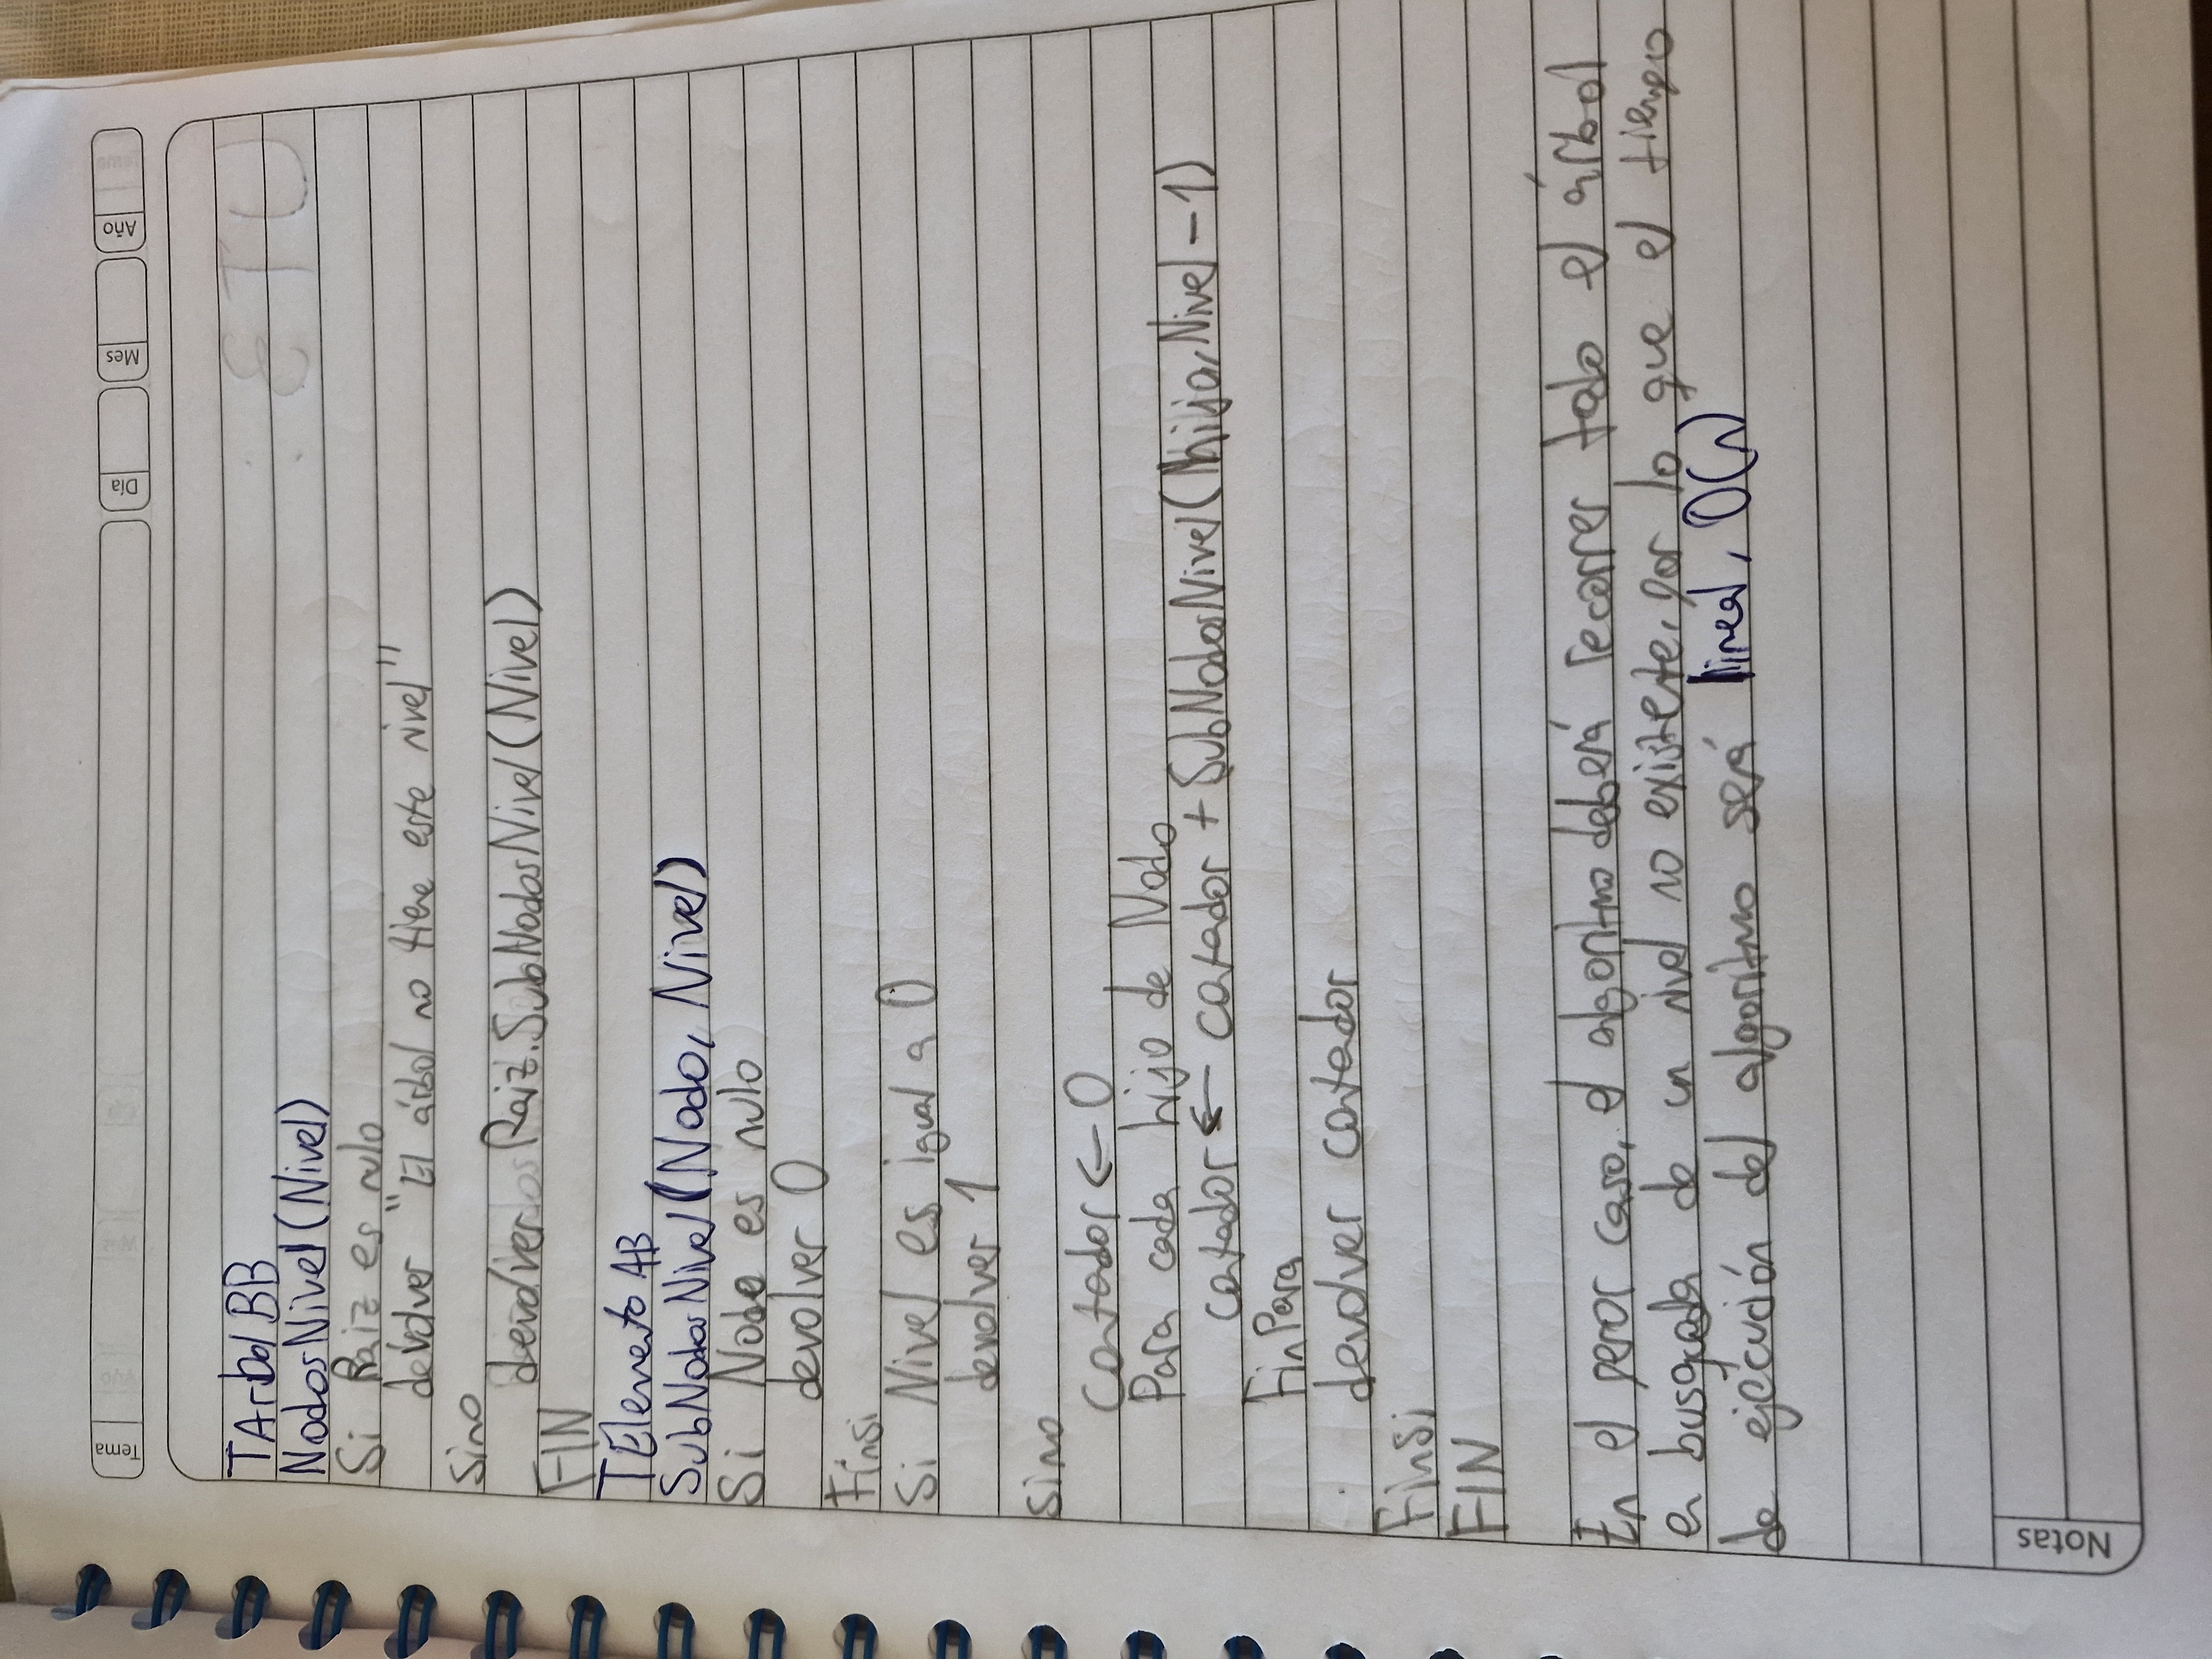 Tema
Día
Mes
Año
TArbolBB
NodosNivel(Nivel)
Si Raiz es nulo
devolver "El árbol no tiene este nivel"
sino
devolver Raiz.SubNodosNivel(Nivel)
FIN
TElementoAB
SubNodosNivel(Nodo, Nivel)
Si Nodo es nulo
devolver 0
Finsi
Si Nivel es igual a 0
devolver 1
sino
contador ← 0
Para cada hijo de Nodo
contador ← contador + SubNodosNivel(hijo, Nivel - 1)
FinPara
devolver contador
Finsi
FIN
En el peror caso, el algoritmo deberá recorrer todo el árbol
en busqueda de un nivel no existente, por lo que el tiempo
de ejecución del algoritmo será lineal, O(n)
Notas